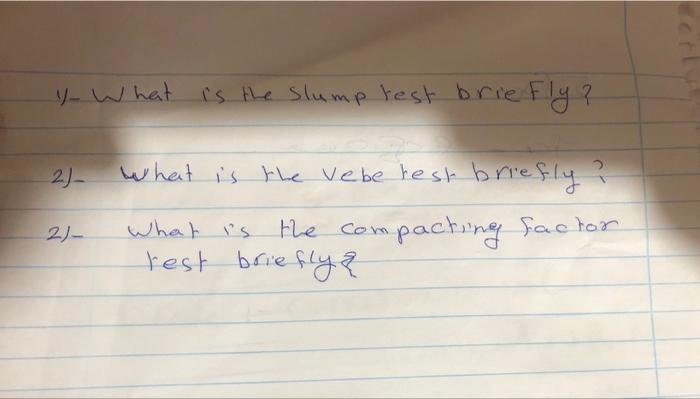 1/- What is the slump test briefly?
2/- What is the Vebe test briefly?
2/- What is the compacting factor
test briefly?